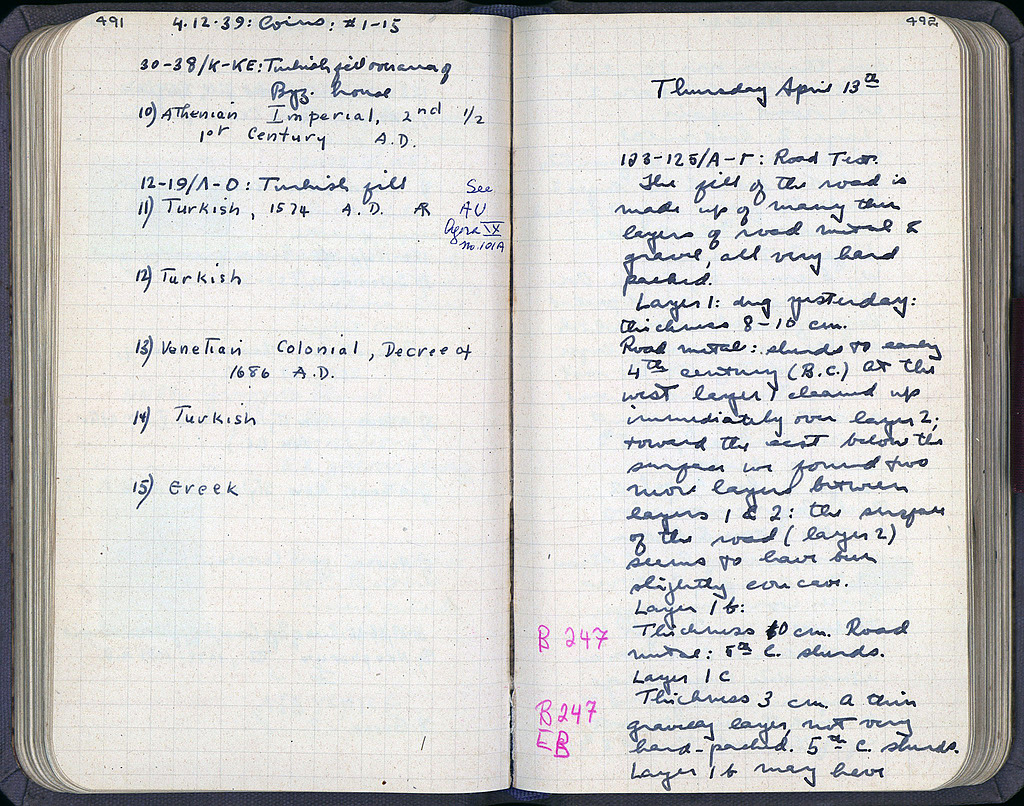 491
4.12.39: Coins: #1-15
30-38/K-KE: Turkish fill over area of
Byz. house
10) Athenian Imperial, 2nd 1/2
1st Century A.D.
12-19/Λ-O: Turkish fill
11) Turkish, 1574 A.D. AR
See
AU
Agora IX
No. 101A
12) Turkish
13) Venetian Colonial, Decree of
1686 A.D.
14) Turkish
15) Greek
492
Thursday April 13th
123-125/A-Γ: Road Test.
The fill of the road is
made up of many thin
layers of road metal &
gravel, all very hard
packed.
Layer 1: dug yesterday:
thickness 8-10 cm.
Road metal: sherds to early
4th century (B.C.) At the
west layer 1 cleaned up
immediately over layer 2;
toward the east below the
surface we found two
more layers between
layers 1 & 2: the surface
of the road (layer 2)
seems to have been
slightly concave.
Layer 1b:
B 247
Thickness 10 cm. Road
metal: 5th c. sherds.
Layer 1c
B 247
EB
Thickness 3 cm. A thin
gravelly layer, not very
hard-packed. 5th c. sherds.
Layer 1b may have